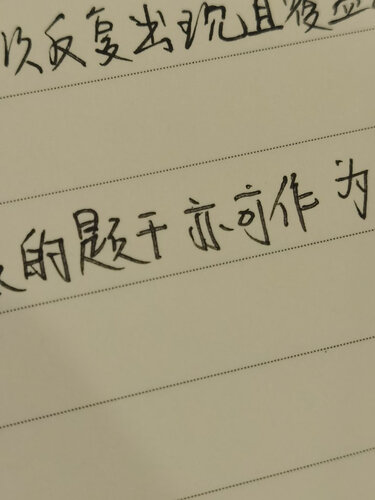 次反复出现且覆盖
的题干亦可作为